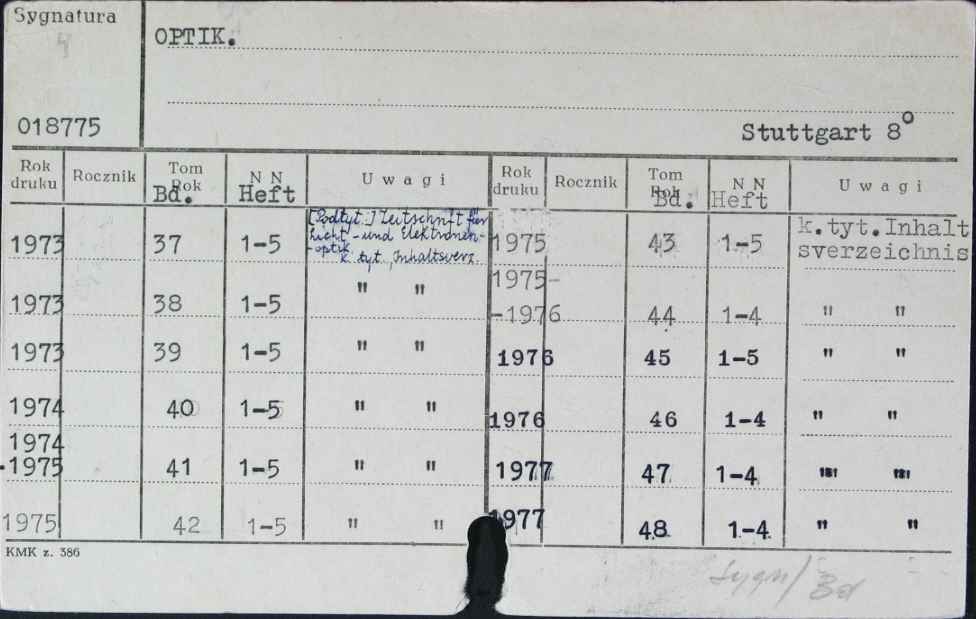 Sygnatura
4
OPTIK.
018775
Stuttgart 8°
Rok druku Rocznik Tom Rok Bd. N N Heft U w a g i Rok druku Rocznik Tom Rok Bd. N N Heft U w a g i
1973 37 1-5 [Podtyt.] Zeitschrift für Licht- und Elektronen- -optik k. tyt. Inhaltsverz. 1975 43 1-5 k.tyt.Inhalt sverzeichnis
1973 38 1-5 " " 1975- -1976 44 1-4 " "
1973 39 1-5 " " 1976 45 1-5 " "
1974 40 1-5 " " 1976 46 1-4 " "
1974 -1975 41 1-5 " " 1977 47 1-4 " "
1975 42 1-5 " " 1977 48 1-4 " "
KMK z. 386
Sygn/Bd